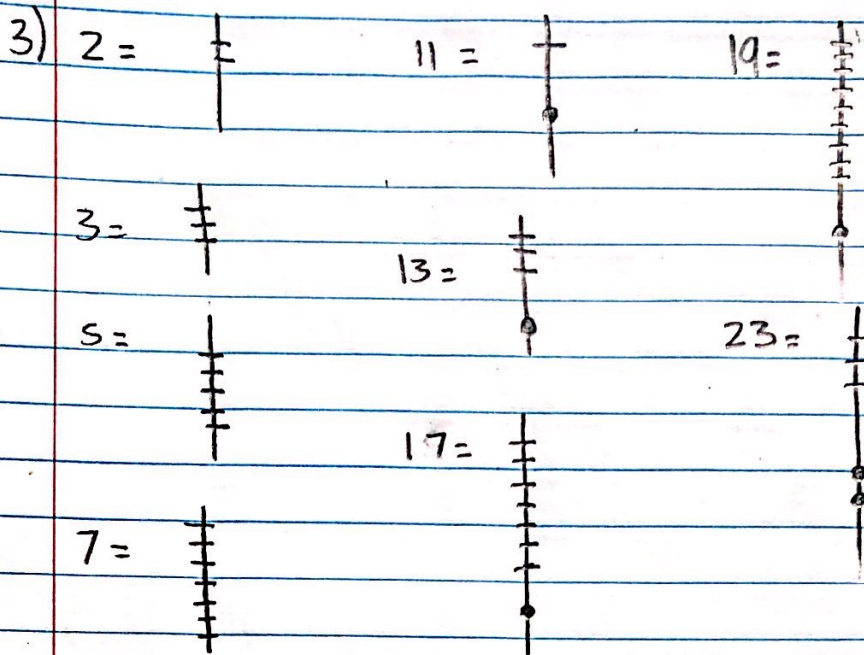 3) 2 =
3 =
5 =
7 =
11 =
13 =
17 =
19 =
23 =